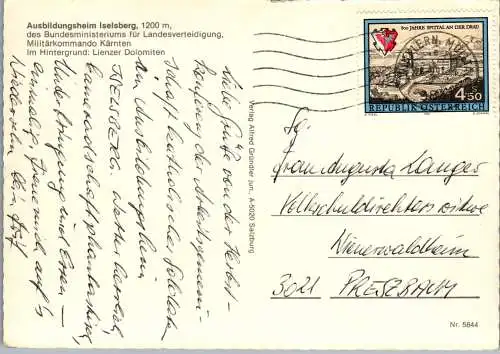 Ausbildungsheim Iselsberg, 1200 m,
des Bundesministeriums für Landesverteidigung,
Militärkommando Kärnten
Im Hintergrund: Lienzer Dolomiten
Liebe Grüße von der Herbst-
tagung der Arbeitsgemein-
schaft katholischer Soldaten
im Ausbildungsheim
ISELSBERG. Wetter herrlich,
Kameradschaft phantastisch,
Unterbringung und Essen -
einmalig. Freue mich auf's
Wiedersehn
Verlag Alfred Gründler jun., A-5020 Salzburg
800 JAHRE SPITTAL AN DER DRAU
4.50
REPUBLIK ÖSTERREICH
Frau Augusta Langer
Volksschuldirektorswitwe
Wienerwaldheim
3021 PRESZBAUM
Nr. 5844